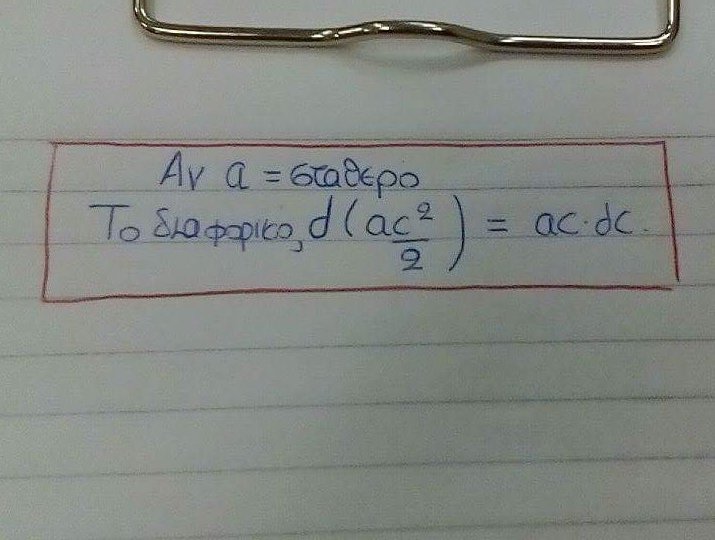 Αν a = σταθερο
Το διαφορικο, d(ac²/2) = ac·dc.